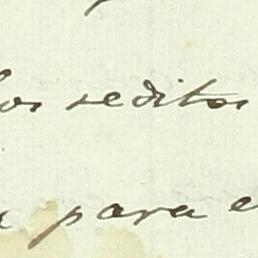 los reditos
para